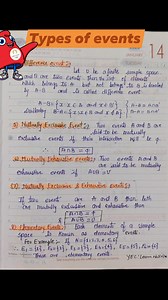 Types of events
14
Difference Event :
Let S be a finite sample space
and A and B are two events then the set of elements
which belongs to A but not belongs to B is denoted
by A-B and is called different event
A-B = {x : x ∈ A and x ∉ B}
Similarly
Mutually Exclusive Event :- Two events A and B
are said to be mutually
Exclusive if their intersection will be φ
A∩B = φ
Mutually Exhaustive Events :- Two events A and B
are said to be mutually
exhaustive if A∪B = U
Mutually Exclusive & Exhaustive events :
If two events are A and B then both
are mutually exclusive and exhaustive then
A∩B = φ
A∪B = U
Elementary Event :- Each element of a sample
space is known as elementary event.
For Example :- If S = {1,2,3,4,5,6}
These are elementary event